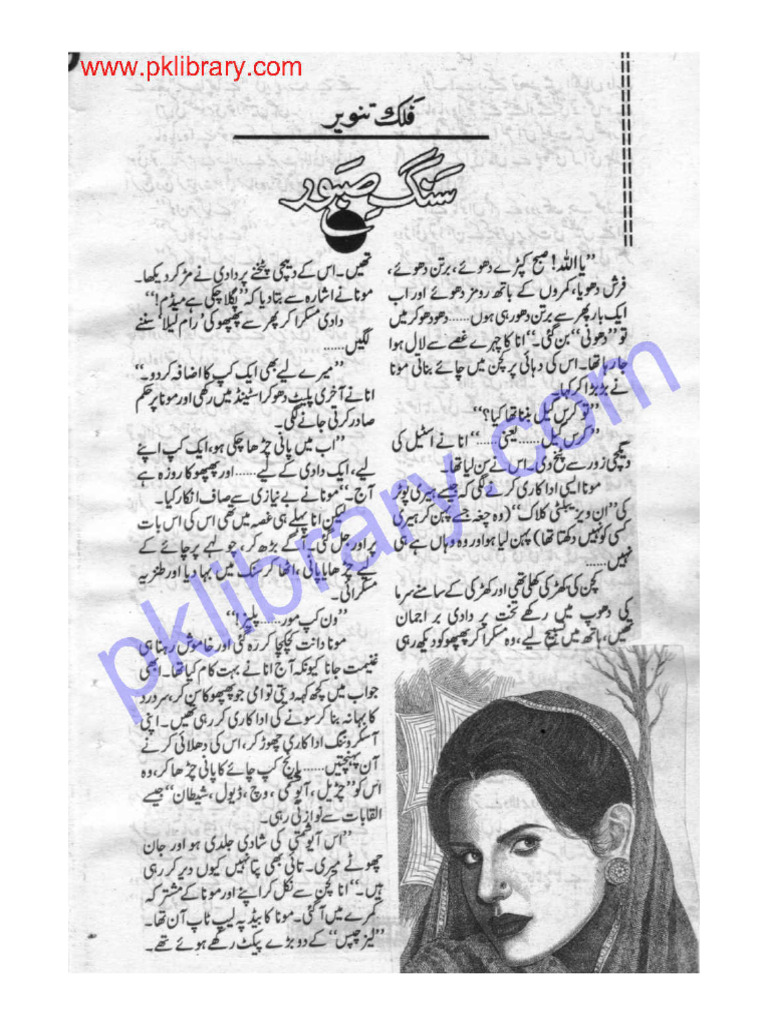 www.pklibrary.com
فلک تنویر
سنگِ صبور
’’یا اللہ! صبح کپڑے دھوئے، برتن دھوئے،
فرش دھویا، کمروں کے باتھ رومز دھوئے اور اب
ایک بار پھر سے برتن دھو رہی ہوں...... دھو دھو کر میں
تو ’’دھونی‘‘ بن گئی۔‘‘ انا کا چہرے غصے سے لال ہوا
جا رہا تھا۔ اس کی دہائی پر کچن میں چائے بناتی مونا
نے بڑبڑا کر کہا۔
’’تو کرس گیل بننا تھا کیا؟‘‘
’’کرس گیل...... یعنی......‘‘ انا نے اسٹیل کی
دیگچی زور سے پٹخ دی۔ اس نے سن لیا تھا۔
مونا ایسی اداکاری کرنے لگی کہ جیسے ہیری پوٹر
کی ’’ان ویزیبلٹی کلاک‘‘ (وہ چغہ جسے پہن کر ہیری
کسی کو نہیں دکھتا تھا) پہن لیا ہو اور وہ وہاں ہے ہی
نہیں......
کچن کی کھڑکی کھلی تھی اور کھڑکی کے سامنے سرما
کی دھوپ میں رکھے تخت پر دادی براجمان
تھیں، ہاتھ میں تسبیح لیے، وہ مسکرا کر پھپھو کو دیکھ رہی
تھیں۔ اس کے دیگچی پٹخنے پر دادی نے مڑ کر دیکھا۔
مونا نے اشارہ سے بتا دیا کہ ’’پگلا چکی ہے میڈم!‘‘
دادی مسکرا کر پھر سے پھپھو کی ’رام لیلا‘ سننے
لگیں......
’’میرے لیے بھی ایک کپ کا اضافہ کر دو۔‘‘
انا نے آخری پلیٹ دھو کر اسٹینڈ میں رکھی اور مونا پر حکم
صادر کرتی جانے لگی۔
’’اب میں پانی چڑھا چکی ہو، ایک کپ اپنے
لیے، ایک دادی کے لیے...... اور پھپھو کا روزہ ہے
آج۔‘‘ مونا نے بے نیازی سے صاف انکار کیا۔
لیکن انا پہلے ہی غصہ میں تھی اس کی اس بات
پر اور جل گئی۔ آگے بڑھ کر، چولہے پر چائے کے
لیے چڑھایا پانی، اٹھا کر سنک میں بہا دیا اور طنزیہ
مسکرائی۔
’’ون کپ مور...... پلیز!‘‘
مونا دانت کچکچا کر رہ گئی اور خاموش رہنا ہی
غنیمت جانا کیونکہ آج انا نے بہت کام کیا تھا۔ ابھی
جواب میں کچھ کہہ دیتی تو امی جو پھپھو کا سن کر، سر درد
کا بہانہ بنا کر سونے کی اداکاری کر رہی تھیں۔ اپنی
آسکر وننگ اداکاری چھوڑ کر، اس کی دھلائی کرنے
آن پہنچتیں...... پانچ کپ چائے کا پانی چڑھا کر، وہ
اس کو ’’چڑیل، آیوشمتی، وچ، ڈیول، شیطان‘‘ جیسے
القابات سے نوازتی رہی۔
’’اس آیوشمتی کی شادی جلدی ہو اور جان
چھوٹے میری۔ تائی بھی پتا نہیں کیوں دیر کر رہی
ہیں۔‘‘ انا کچن سے نکل کر اپنے اور مونا کے مشترکہ
کمرے میں آ گئی۔ مونا کا بیڈ پہ لیپ ٹاپ آن تھا۔
’’لیز چپس‘‘ کے دو بڑے پیکٹ رکھے ہوئے تھے۔
pklibrary.com